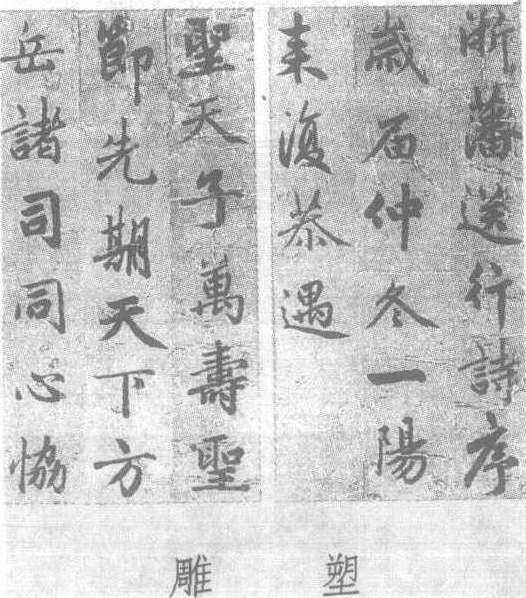 浙藩送行詩序
歲屆仲冬一陽
来復恭遇
聖天子萬壽聖
節先期天下方
岳諸司同心恊
塑
雕